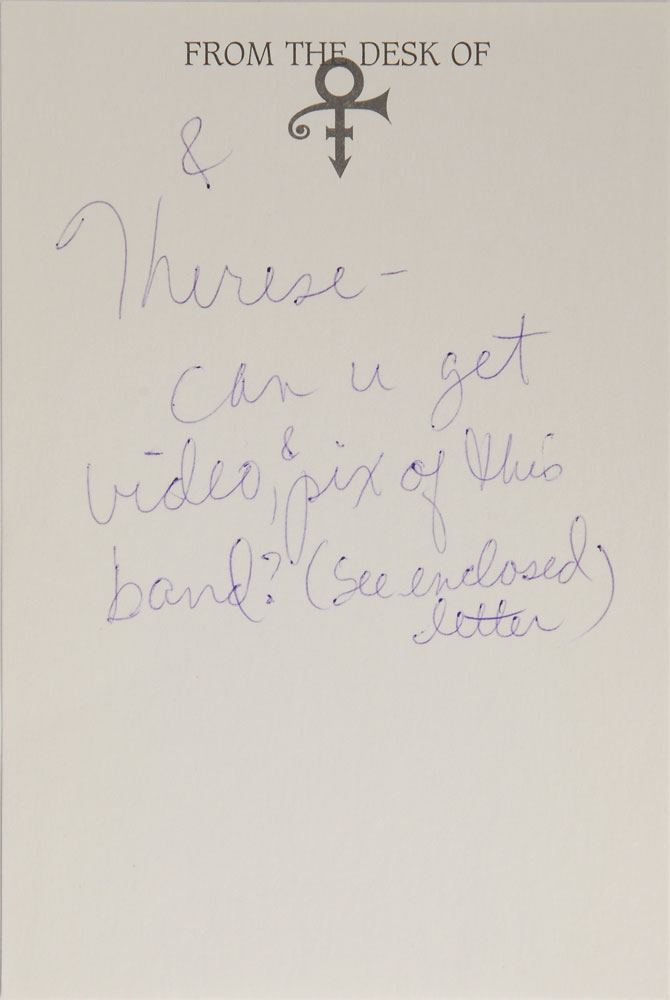 FROM THE DESK OF
&
Therese -
can u get
video, & pix of this
band? (see enclosed
letter)